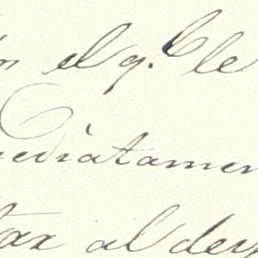 el q.e le
ediatamen
tar al des